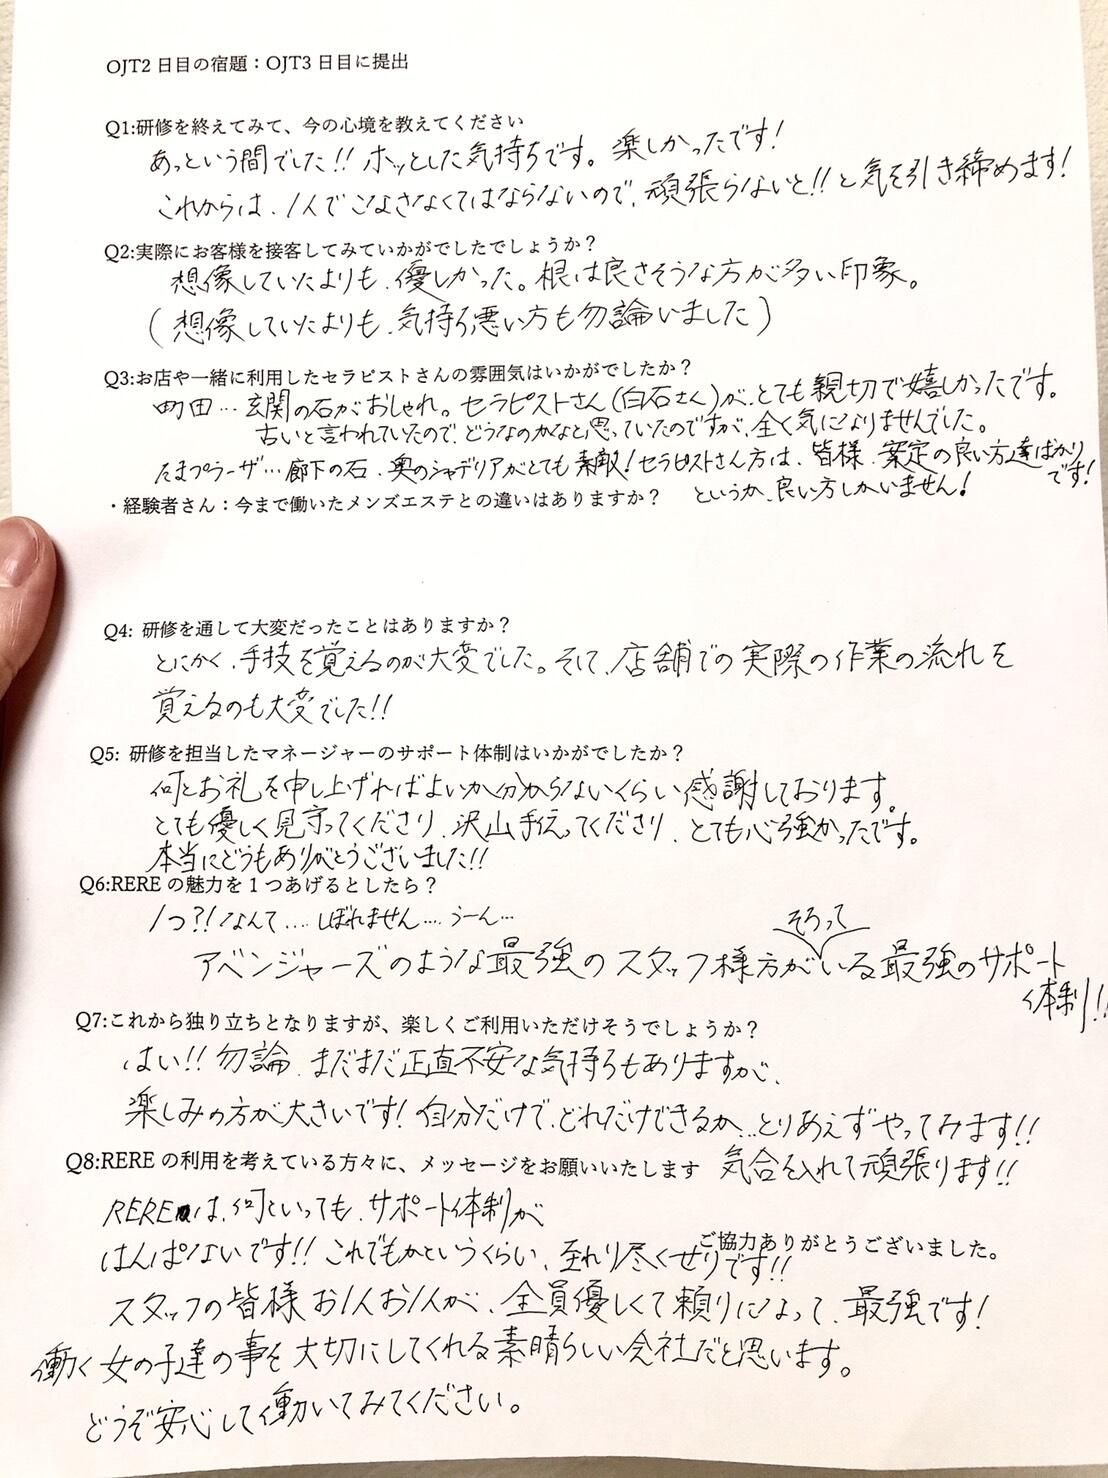 OJT2日目の宿題：OJT3日目に提出
Q1:研修を終えてみて、今の心境を教えてください
あっという間でした!! ホッとした気持ちです。楽しかったです!
これからは、1人でこなさなくてはならないので、頑張らないと!!と気を引き締めます!
Q2:実際にお客様を接客してみていかがでしたでしょうか？
想像していたよりも、優しかった。根は良さそうな方が多い印象。
(想像していたよりも、気持ち悪い方も勿論いました)
Q3:お店や一緒に利用したセラピストさんの雰囲気はいかがでしたか？
町田…玄関の石がおしゃれ。セラピストさん(白石さん)が、とても親切で嬉しかったです。
古いと言われていたので、どうなのかなと思っていたのですが、全く気になりませんでした。
たまプラーザ…廊下の石、奥のシャデリアがとても素敵!セラピストさん方は、皆様、案定の良い方達ばかり
です!
・経験者さん：今まで働いたメンズエステとの違いはありますか？
というか、良い方しかいません!
Q4: 研修を通して大変だったことはありますか？
とにかく、手技を覚えるのが大変でした。そして、店舗での実際の作業の流れを
覚えるのも大変でした!!
Q5: 研修を担当したマネージャーのサポート体制はいかがでしたか？
何とお礼を申し上げればよいか分からないくらい感謝しております。
とても優しく見守ってくださり、沢山手伝ってくださり、とても心強かったです。
本当にどうもありがとうございました!!
Q6:REREの魅力を1つあげるとしたら？
1つ?!なんて…. しぼれません… うーん…
そろって
アベンジャーズのような最強のスタッフ様方がいる最強のサポート
体制!!
Q7:これから独り立ちとなりますが、楽しくご利用いただけそうでしょうか？
はい!! 勿論、まだまだ正直不安な気持ちもありますが、
楽しみの方が大きいです! 自分だけで、どれだけできるか…とりあえずやってみます!!
気合を入れて頑張ります!!
Q8:REREの利用を考えている方々に、メッセージをお願いいたします
REREは、何といっても、サポート体制が
はんぱないです!! これでもかというくらい、至れり尽くせりです!!
ご協力ありがとうございました。
スタッフの皆様お1人お1人が、全員優しくて頼りになって、最強です!
働く女の子達の事を大切にしてくれる素晴らしい会社だと思います。
どうぞ安心して働いてみてください。